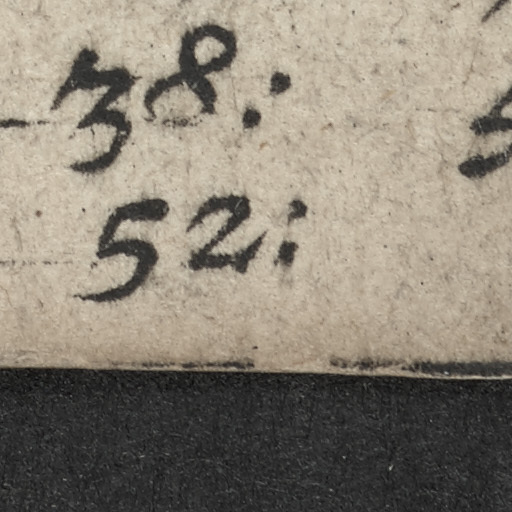 38:
52: